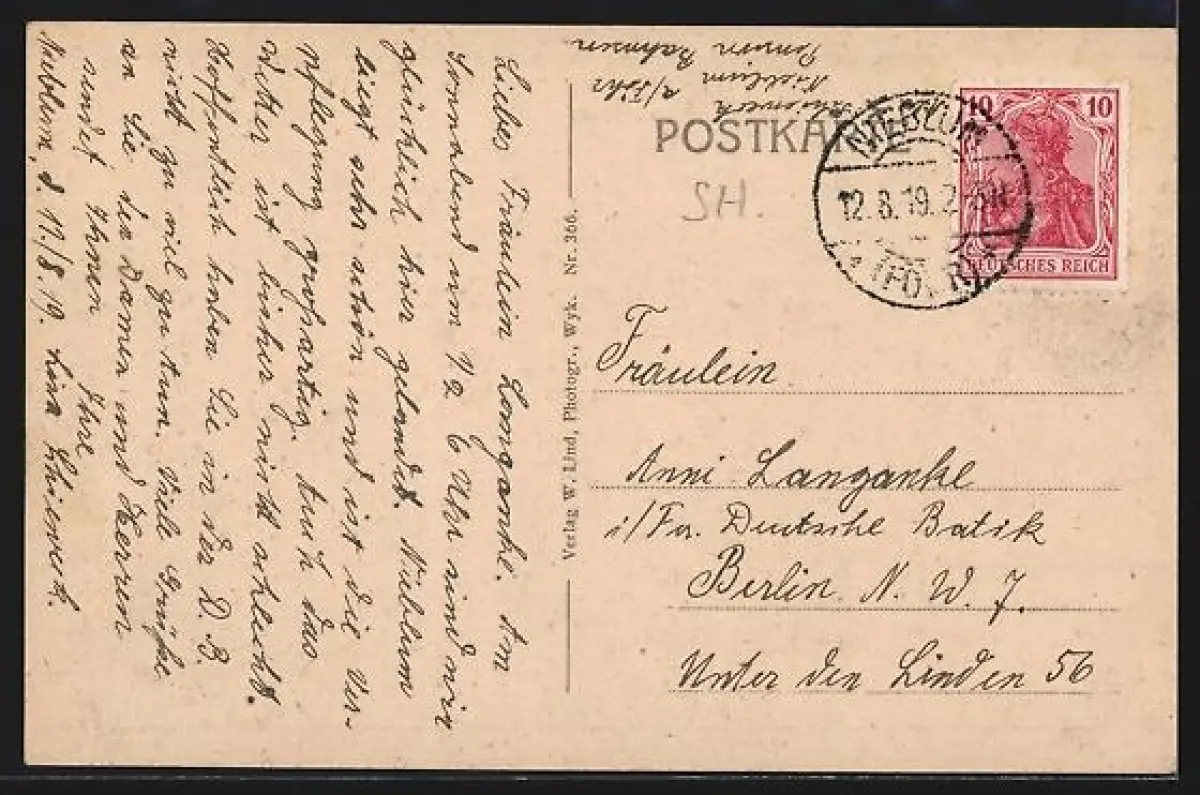 Liebes Fräulein Langanke. Am
Sonnabend um 1/2 6 Uhr sind wir
glücklich hier gelandet. Nieblum
liegt sehr schön und ist die Ver-
pflegung großartig. Auch das
Wetter ist bisher nicht schlecht.
Hoffentlich haben Sie in der D. B.
nicht zu viel zu tun. Viele Grüße
an Sie, der Damen und Herren
sendet Ihnen Ihre
Nieblum, d. 11/8. 19. Lina
Nieblum a/Föhr
Pension
POSTKARTE
NIEBLUM
12.8.19.2
(FÖHR)
10 10
DEUTSCHES REICH
SH.
Verlag W. Lind, Photogr., Wyk. Nr. 366.
Fräulein
Anni Langanke
i/Fa. Deutsche Batik
Berlin N. W. 7.
Unter den Linden 56